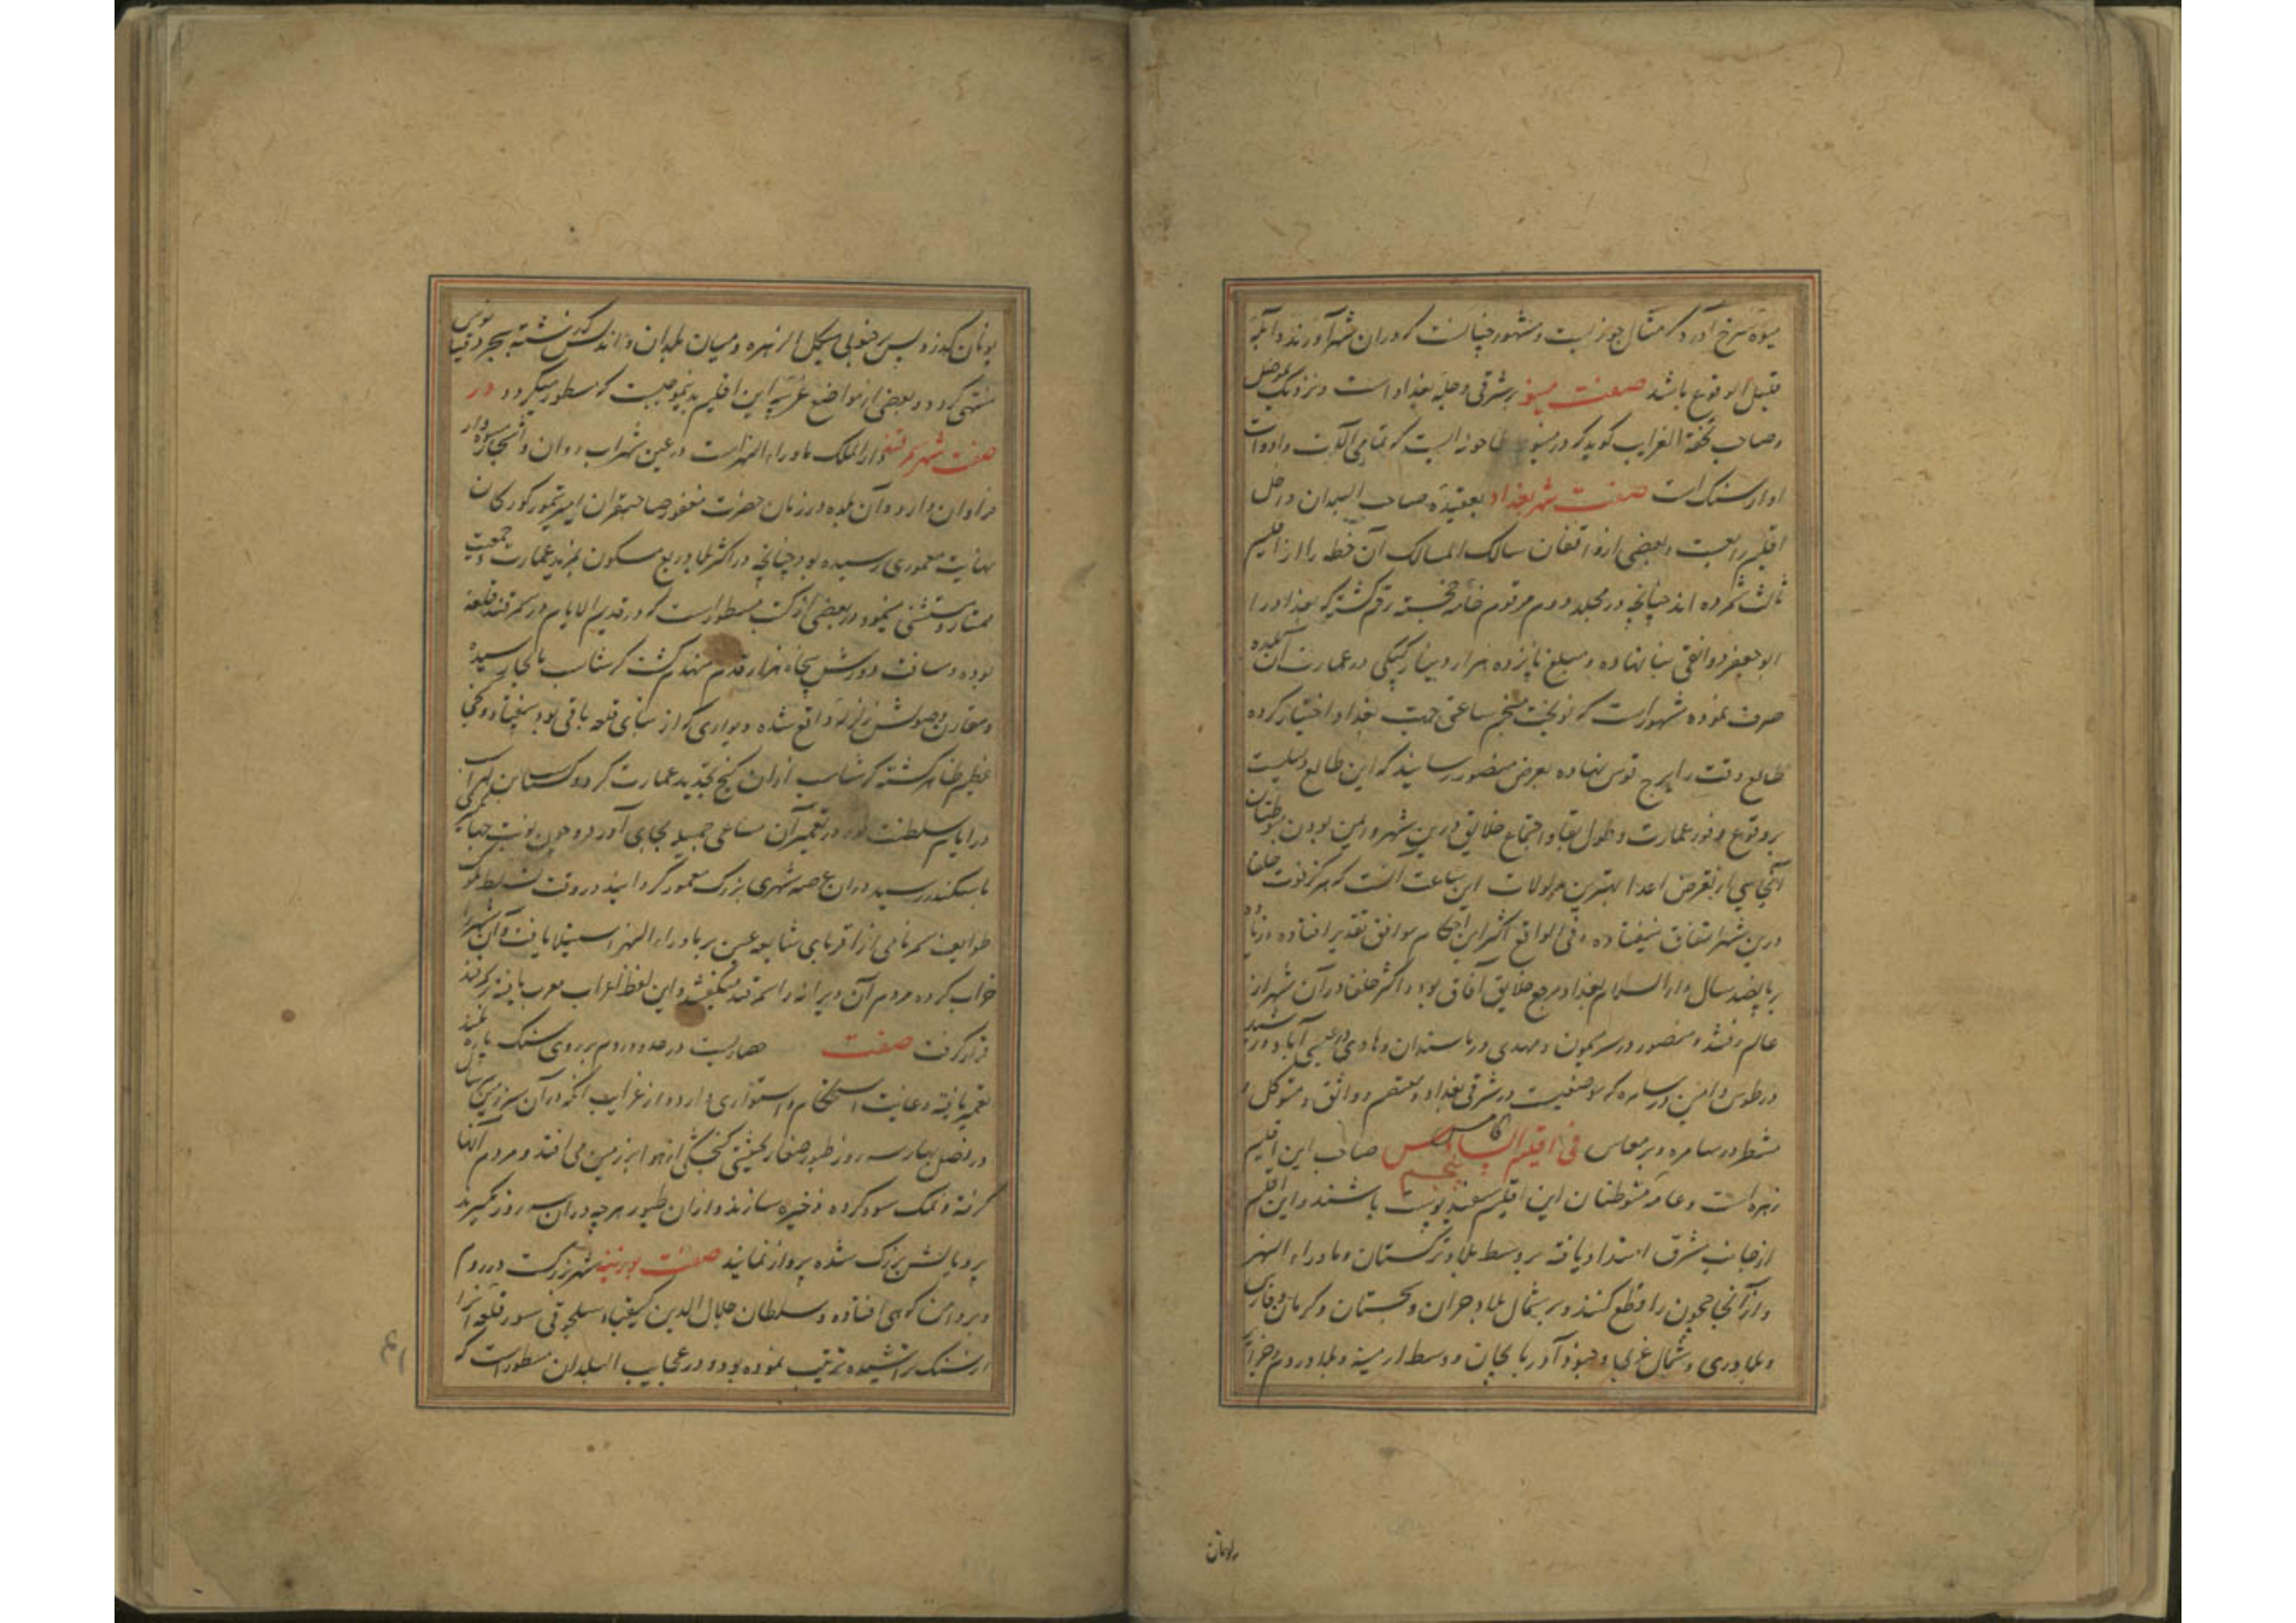 میوه سرخ آورد که مثال جوز نیست و مشهور چنانست که در آن شهر آورند و آنچه
قلیل الوقوع باشد صفت بر شرقی دجله بغداد است و نزدیک بموصل
و صاحب تحفة الغرایب کوید که در طاحونه ایست که تمامی آلات و ادوات
او از سنگ است صفت شهر بغداد بعقیده صاحب البلدان داخل
اقلیم رابعست و بعضی از واقفان مسالک الممالک آن خطه را از اقلیم
ثالث شمرده اند چنانچه در مجلد دوم مرقوم خامه خجسته رقم کشته که بغداد را
ابو جعفر دوانقی بنا نهاده و مبلغ پانزده هزار دینار در عمارت آن بلده
صرف نموده مشهور است که نوبخت منجم ساعتی جهت بغداد اختیار کرده
طالع وقت را برج قوس نهاده بعرض منصور رسانید که این طالع دلیلست
بر وقوع وفور عمارت و طول بقا و اجتماع خلایق درین شهر و ایمن بودن متوطنان
آنجا از تعرض اعدا بهترین مدلولات این ساعت آنست که هرگز فوت خلفا
درین شهر اتفاق نیفتاده و فی الواقع اکثر این احکام موافق تقدیر افتاده
پانصد سال دار السلام بغداد مرجع خلایق آفاق بوده و اکثر خلفا در آن شهر از
عالم رفتند منصور در سر میمون و مهدی در ماسندان و هادی در عیسی آباد و رشید
در طوس و امین در سامره که موضعیست در شرقی بغداد و معتصم و واثق و متوکل و
منتظر در سامره و بر معاس فی اقلیم الخامس پنجم صاحب این اقلیم
زهره است و عامه متوطنان این اقلیم سفید پوست باشند و این اقلیم
از جانب شرق امتداد یافته بر وسط بلاد ترکستان و ماوراء النهر
و از آنجا جیحون را قطع کنند و بر شمال بلاد خراسان و سجستان و کرمان و فارس
و بلاد ری و شمال عراق و جنوب آذربایجان و وسط ارمینه و بلاد روم و جزایر
یونان
یونان بگذرد پس بر جنوبی هیکل الزهره و میان بلدان اندلس گذشته ببحر اوقیانوس
منتهی گردد و بعضی از مواضع غریبه این اقلیم بدینموجبست که مسطور میگردد در
صفت شهر سمرقند دار الملک ماوراء النهر است در عین شهر آب روان و اشجار میوه دار
فراوان دارد و آن بلده در زمان حضرت مغفور صاحبقران امیر تیمور کورکان
بنهایت معموری رسیده بود چنانچه در اکثر بلاد ربع مسکون بمزید عمارت و جمعیت
ممتاز و مستثنی نمود در بعضی از کتب مسطور است که در قدیم الایام در سمرقند قلعه
بوده و مسافت دورش پنجاه هزار قدم منهدم کشت کرشاسب بآنجا رسیده
و مقارن وصولش زلزله واقع شده دیواری که از بنای قلعه باقی بود بیفتاد و گنجی
عظیم ظاهر گشته کرشاسب از آن گنج تجدید عمارت کرد و گشتاسب بن لهراسب
در ایام سلطنت خود در تعمیر آن مساعی جمیله بجای آورد و چون نوبت جهانگیری
باسکندر رسید در آن عرصه شهری بزرک معمور گردانید در وقت تسلط ملوک
طوایف سمر نامی از اقربای بر ماوراء النهر استیلا یافت و آن شهر را
خراب کرده مردم آن ویرانه را سمرکند میگفتند و این لفظ اعراب معرب یافته سمرقند
قرار گرفت صفت حصاریست در حدود روم بر روی سنگ پاره بلند
تعمیر یافته و غایت استحکام و استواری دارد و از غرایب آنکه در آن سرزمین هر سال
در فصل بهار سه روز طیور صغار بحیثیتی گنجشکی از هوا بر زمین می افتد و مردم آنها
گرفته و نمک سود کرده ذخیره سازند و از آن طیور هر چه در آن سه روز نگیرند
پر و بالش بزرگ شده پرواز نمایند صفت شهر بزرگست در روم
و بر دامن کوهی افتاده و سلطان جلال الدین کیقباد سلجوقی سور قلعه آنرا
از سنگ تراشیده ترتیب نموده بود و در عجایب البلدان مسطور است که